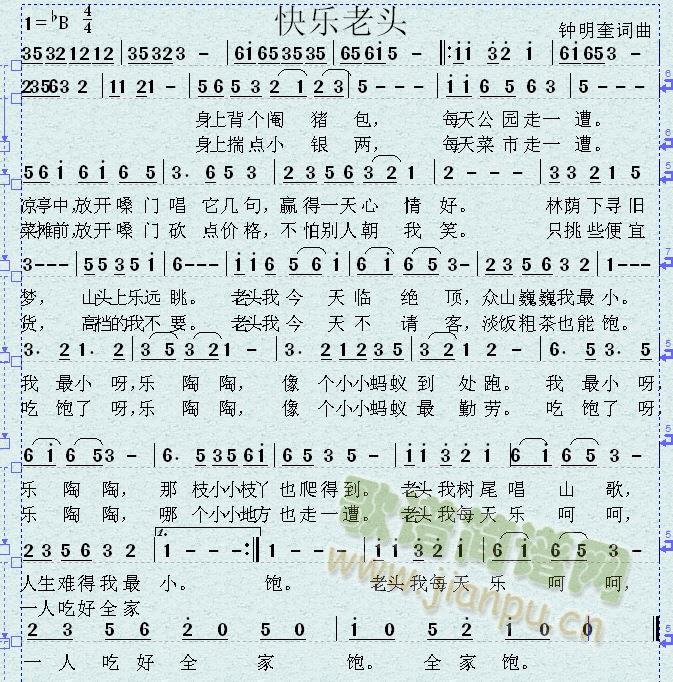 快乐老头
1=♭B 4/4
钟明奎词曲
35321212 | 35323 - | 6i653535 | 656i5 - |: ii 32 i | 6i653 -
235632 | 11 21 - | 56532 12 123 | 5 - - - | ii6563 | 5 - - -
身上背个阉 猪 包, 每天公园走一遭。
身上揣点小 银 两, 每天菜市走一遭。
56i 6i65 | 3. 653 | 2356321 | 2 - - - | 33 215
凉亭中,放开嗓门唱 它几句,赢得一天心 情 好。 林荫下寻旧
菜摊前,放开嗓门砍 点价格,不怕别人朝 我 笑。 只挑些便宜
3 - - - | 5535i | 6 - - - | ii6 56i | 6i653 - | 235632 | 1 - - -
梦, 山头上乐远眺。 老头我今 天临 绝 顶,众山巍巍我最小。
货, 高档的我不要。 老头我今 天不 请 客,淡饭粗茶也能饱。
3. 21.2 | 35321 - | 3. 21235 | 3212 - | 6. 53.5
我 最小 呀,乐 陶 陶, 像 个小小蚂蚁到 处跑。 我 最小呀,
吃 饱了 呀,乐 陶 陶, 像 个小小蚂蚁最 勤劳。 吃 饱了呀,
6i653 - | 6. 53566i | 5635 - | ii32i | 6i65
乐 陶 陶, 那 枝小小枝丫也爬得到。 老头我树尾唱 山 歌,
乐 陶 陶, 哪 个小小地方也走一遭。 老头我每天乐 呵 呵,
235632 | 1. 1 - - - :| 1 - - - | ii32i | 6i653 -
人生难得我最 小。 饱。 老头我每天 乐 呵 呵,
一人吃好全家
2 3 5 6 2 0 5 0 | i 0 5 2 i 0 0
一 人 吃 好 全 家 饱。 全 家 饱。
歌谱简谱网
www.jianpu.cn